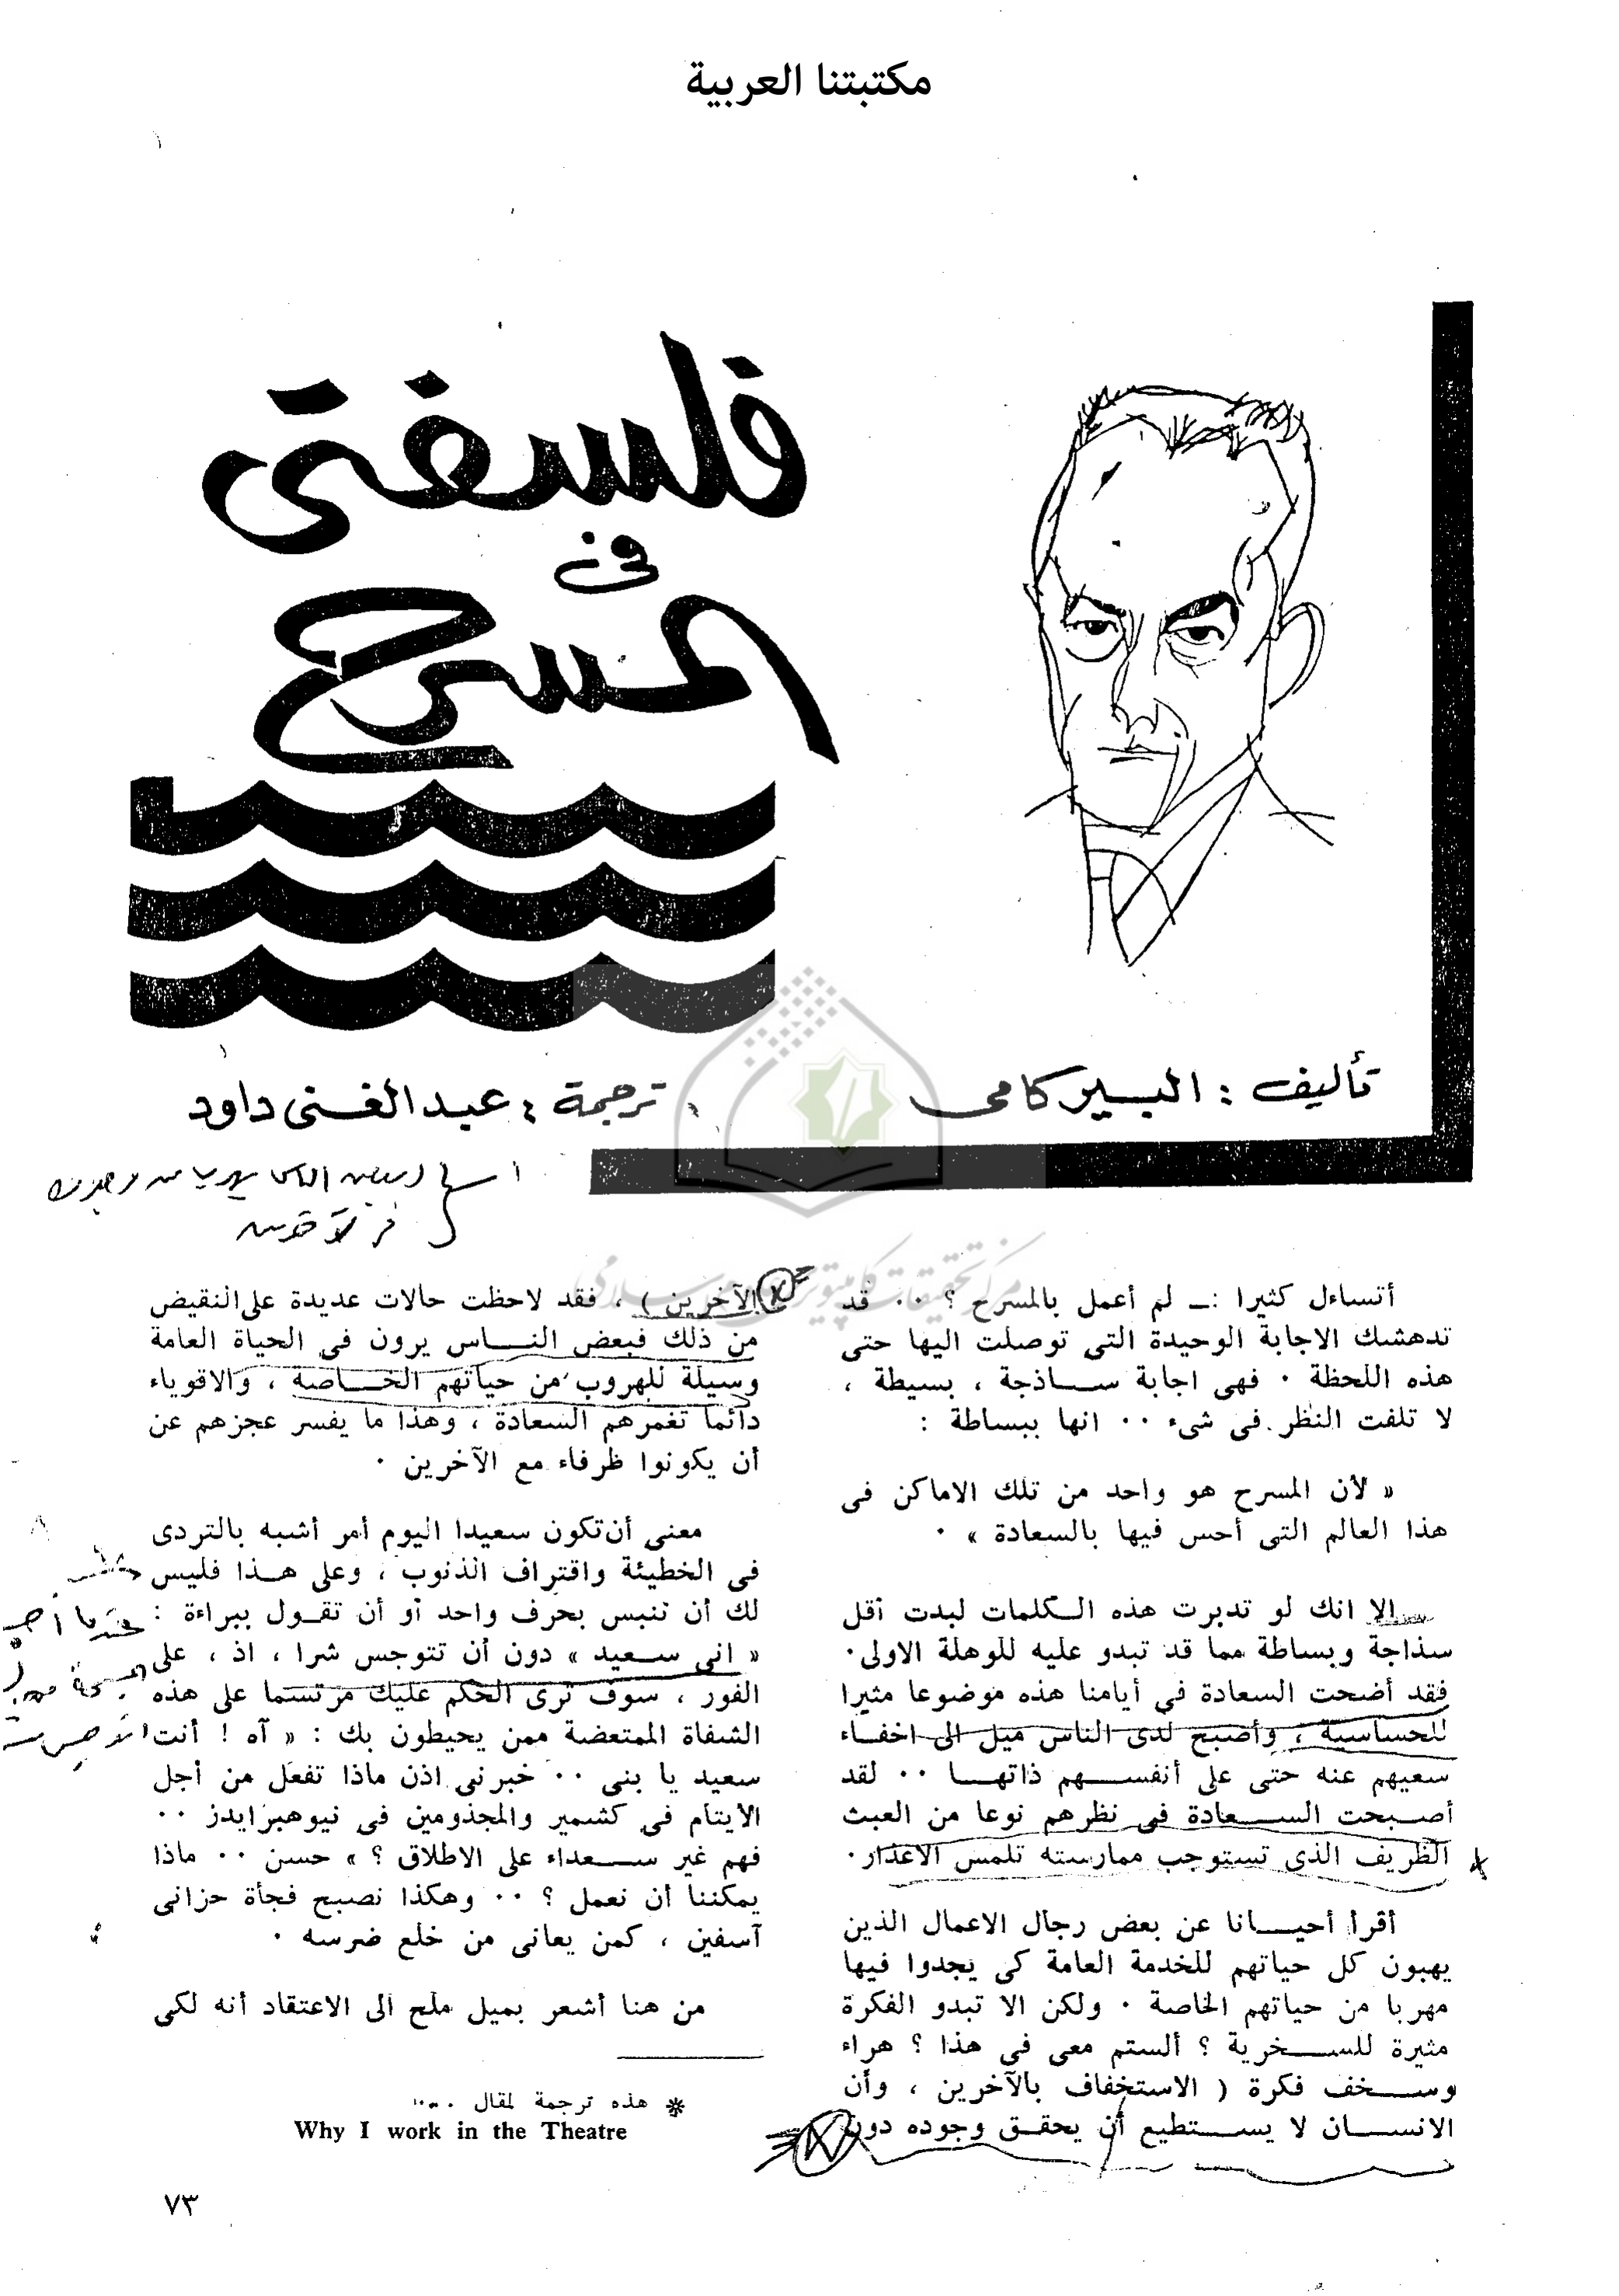 مكتبتنا العربية
فلسفتى
فى
المسرح
تأليف : البير كامى
ترجمة : عبد الغنى داود
أتساءل كثيرا :ـ لم أعمل بالمسرح ؟ ٠٠ قد
تدهشك الاجابة الوحيدة التى توصلت اليها حتى
هذه اللحظة ٠ فهى اجابة ساذجة ، بسيطة ،
لا تلفت النظر فى شىء ٠٠ انها ببساطة :
« لأن المسرح هو واحد من تلك الاماكن فى
هذا العالم التى أحس فيها بالسعادة » ٠
الا انك لو تدبرت هذه الكلمات لبدت أقل
سذاجة وبساطة مما قد تبدو عليه للوهلة الاولى٠
فقد أضحت السعادة فى أيامنا هذه موضوعا مثيرا
للحساسية ، وأصبح لدى الناس ميل الى اخفاء
سعيهم عنه حتى على أنفسهم ذاتها ٠٠ لقد
أصبحت السعادة فى نظرهم نوعا من العبث
الظريف الذى تستوجب ممارسته تلمس الاعذار٠
أقرأ أحيانا عن بعض رجال الاعمال الذين
يهبون كل حياتهم للخدمة العامة كى يجدوا فيها
مهربا من حياتهم الخاصة ٠ ولكن الا تبدو الفكرة
مثيرة للسخرية ؟ ألستم معى فى هذا ؟ هراء
وسخف فكرة ( الاستخفاف بالآخرين ، وأن
الانسان لا يستطيع أن يحقق وجوده دون
الآخرين ) ، فقد لاحظت حالات عديدة على النقيض
من ذلك فبعض الناس يرون فى الحياة العامة
وسيلة للهروب من حياتهم الخاصة ، والاقوياء
دائما تغمرهم السعادة ، وهذا ما يفسر عجزهم عن
أن يكونوا ظرفاء مع الآخرين ٠
معنى أن تكون سعيدا اليوم أمر أشبه بالتردى
فى الخطيئة واقتراف الذنوب ، وعلى هذا فليس
لك أن تنبس بحرف واحد أو أن تقول ببراءة :
« انى سعيد » دون أن تتوجس شرا ، اذ ، على
الفور ، سوف ترى الحكم عليك مرتسما على هذه
الشفاة الممتعضة ممن يحيطون بك : « آه ! أنت
سعيد يا بنى ٠٠ خبرنى اذن ماذا تفعل من أجل
الايتام فى كشمير والمجذومين فى نيوهبرايدز ٠٠
فهم غير سعداء على الاطلاق ؟ » حسن ٠٠ ماذا
يمكننا أن نعمل ؟ ٠٠ وهكذا نصبح فجأة حزانى
آسفين ، كمن يعانى من خلع ضرسه ٠
من هنا أشعر بميل ملح الى الاعتقاد أنه لكى
✻ هذه ترجمة لمقال ٠٠٠٠
Why I work in the Theatre
٧٣